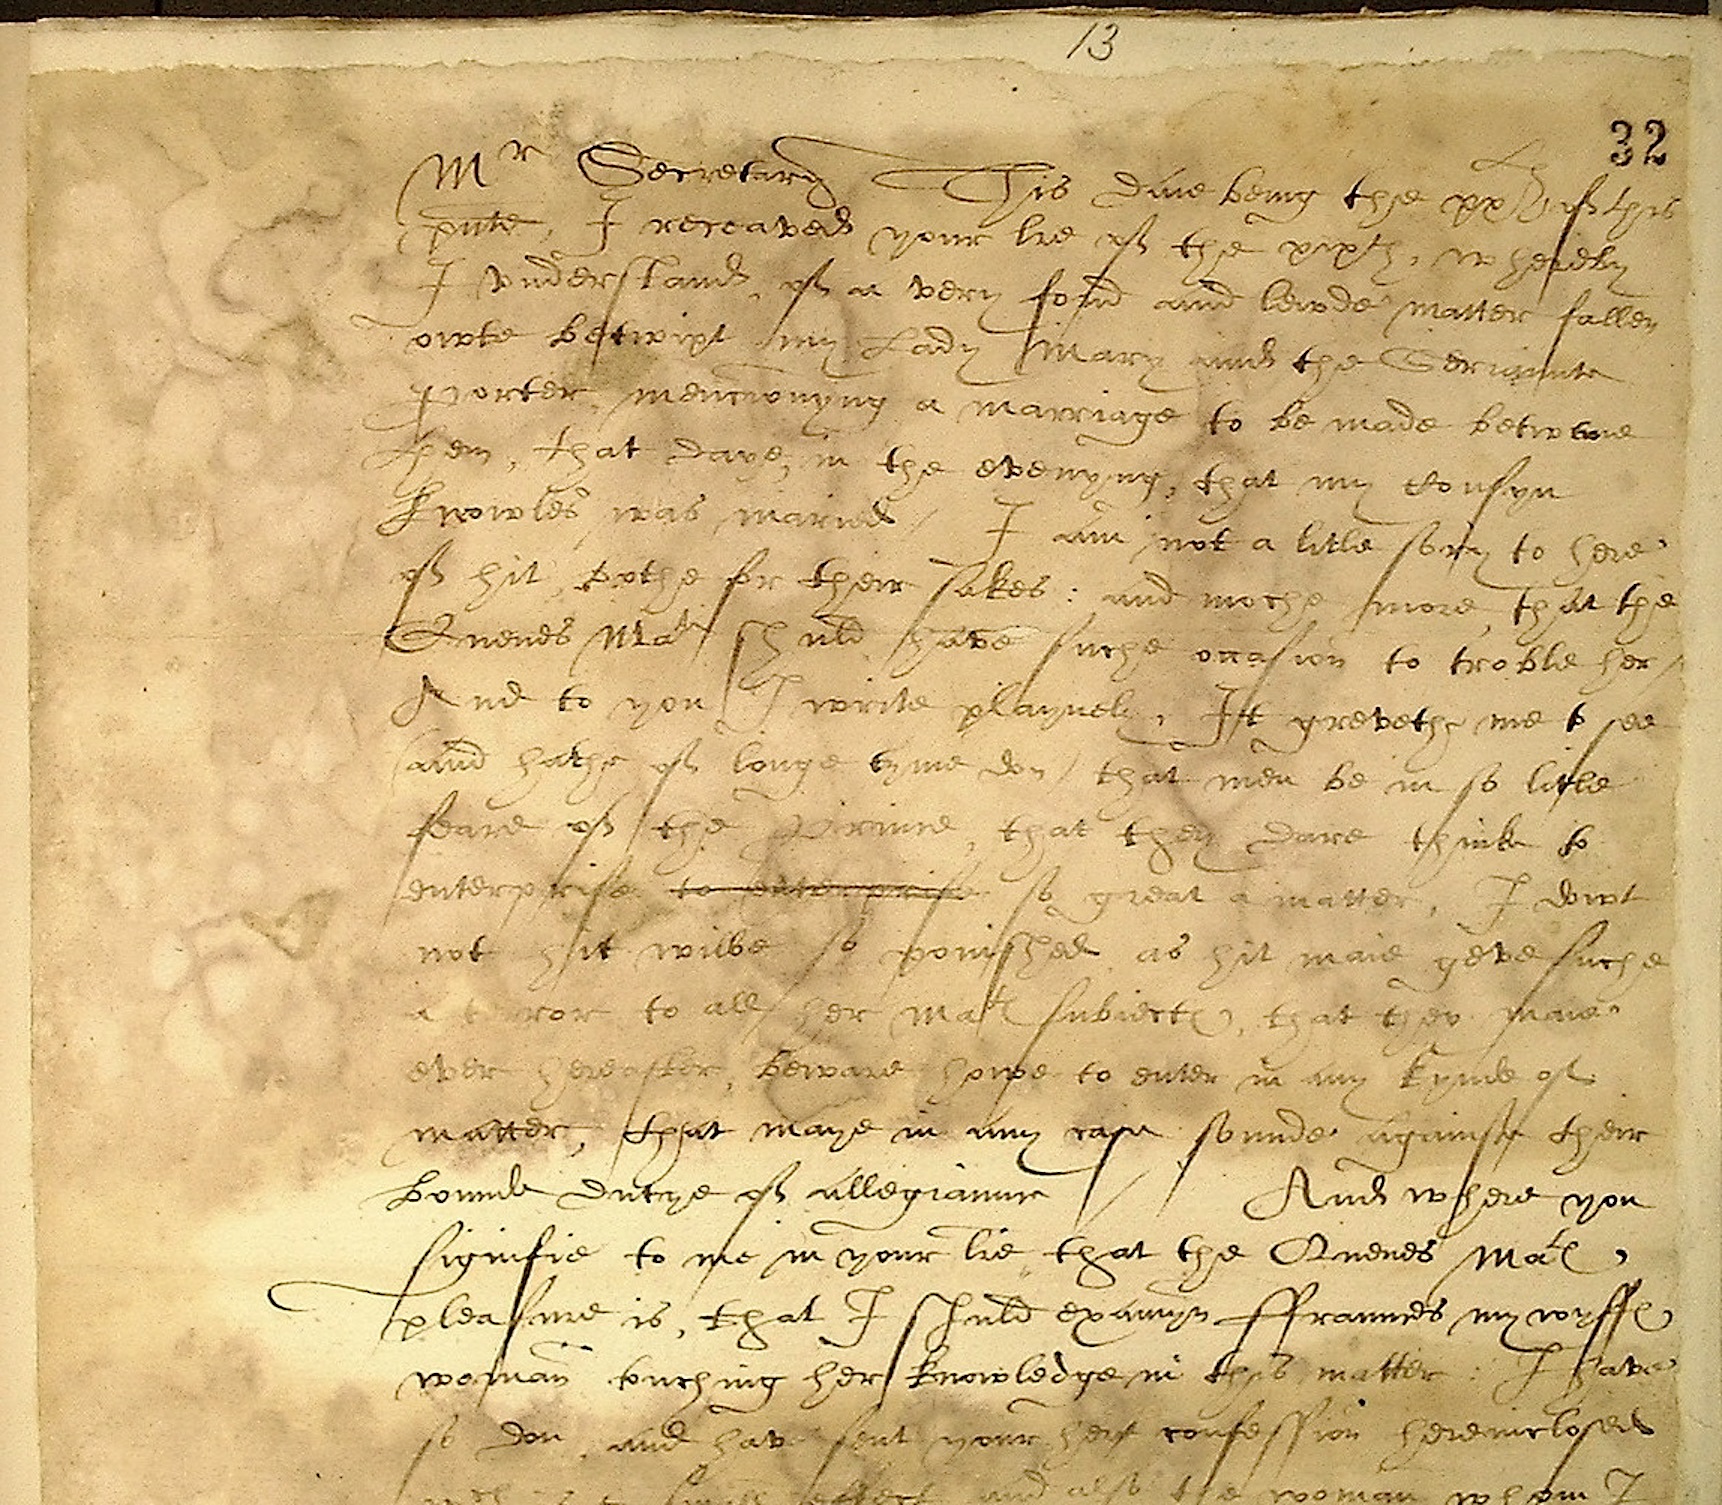 13
32
Mr Secretary This daie being the xxth of this
pnte, I receaved your lre of the xixth, wherby
I understand, of a very fond and lewde matter fallen
owte betwixt my Lady Mary and the Seriaunte
porter, mencionyng a marriage to be made betwene
them, that daye, in the evenyng, that my Cousyn
Knowles was maried / I am not a litle sory to here
of hit, bothe for their sakes: and moche more, that the
Quenes Matie shuld have suche occasion to troble her /
And to you I write playnely, It greveth me to see
(and hathe of longe tyme don) that men be in so litle
feare of the Prince, that they dare thinke to
enterprise to enterprise so great a matter, I dowt
not hit wilbe so ponished as hit maie geve suche
a terror to all her Mates subiectes, that they maie
ever hereafter, beware howe to enter in any kynde of
matter, that maye in any case sounde againste their
bounde dutye of allegiaunce / And where you
signifie to me in your lre that the Quenes Mates
pleasure is, that I shuld examyn ffraunces my wyffes
woman touching her knowledge in this matter: I have
so don, and have sent your her confession hereinclosed
wch is to small effect and also the woman whom I